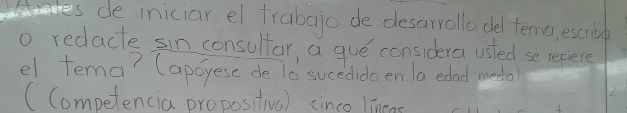 Antes de iniciar el trabajo de desarrollo del tema, escriba
o redacte sin consultar, a qué considera usted se refiere
el tema? (apóyese de lo sucedido en la edad media)
( Competencia propositiva) cinco líneas